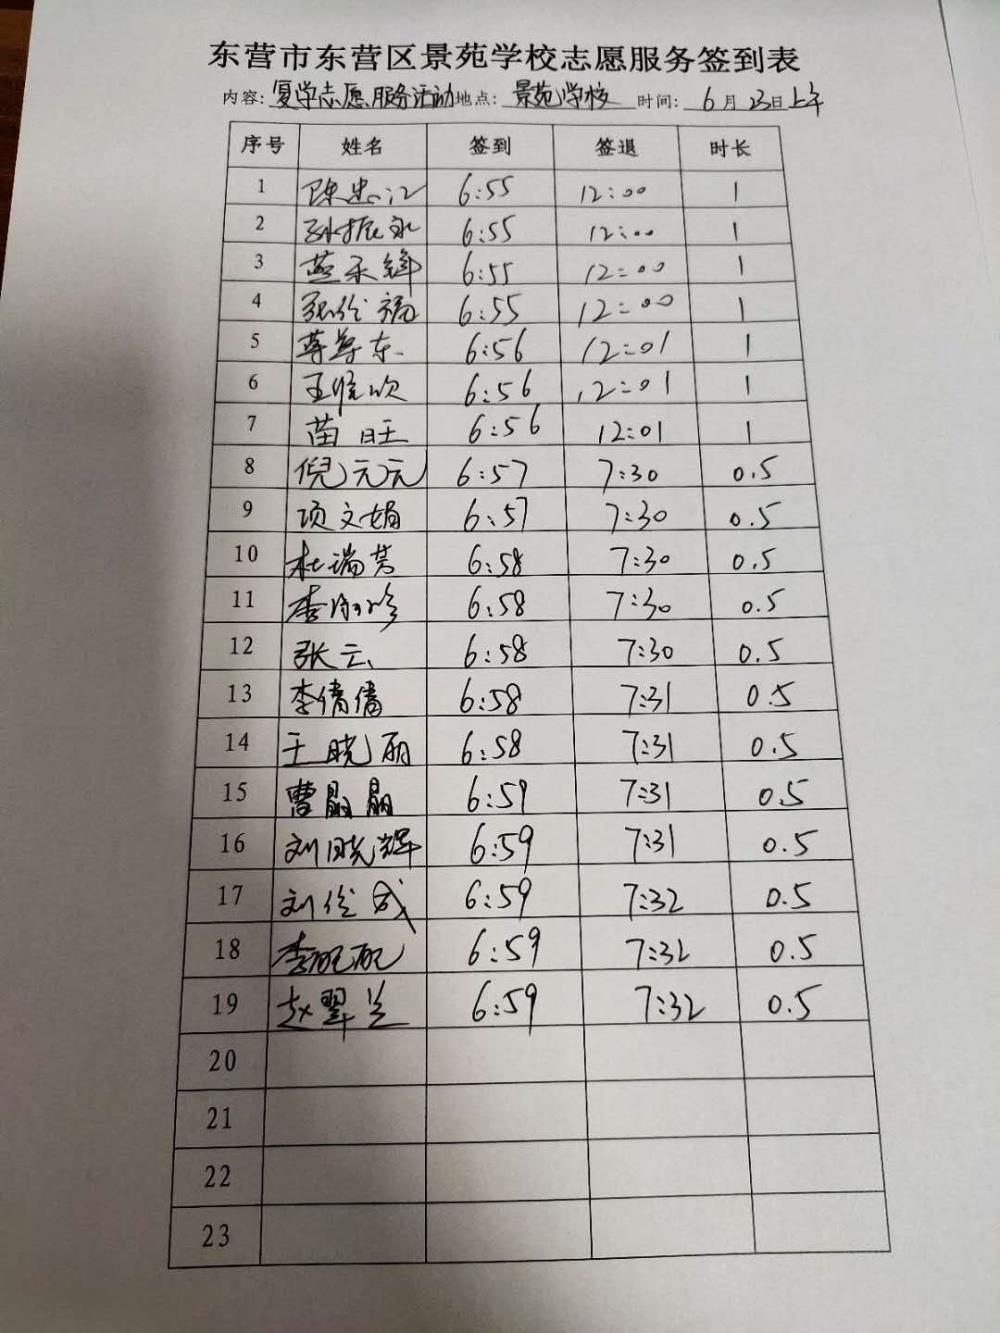 东营市东营区景苑学校志愿服务签到表
内容: 复学志愿服务活动 地点: 景苑学校 时间: 6月23日上午
序号 姓名 签到 签退 时长
1 陈忠江 6:55 12:00 1
2 孙振永 6:55 12:00 1
3 燕永锋 6:55 12:00 1
4 张伦福 6:55 12:00 1
5 尊东 6:56 12:01 1
6 王 6:56 12:01 1
7 苗旺 6:56 12:01 1
8 倪元元 6:57 7:30 0.5
9 项文娟 6:57 7:30 0.5
10 杜瑞芳 6:58 7:30 0.5
11 李 6:58 7:30 0.5
12 张云 6:58 7:30 0.5
13 李倩倩 6:58 7:31 0.5
14 王晓丽 6:58 7:31 0.5
15 曹晶晶 6:59 7:31 0.5
16 刘晓辉 6:59 7:31 0.5
17 刘伦成 6:59 7:32 0.5
18 李配配 6:59 7:32 0.5
19 赵翠兰 6:59 7:32 0.5
20
21
22
23